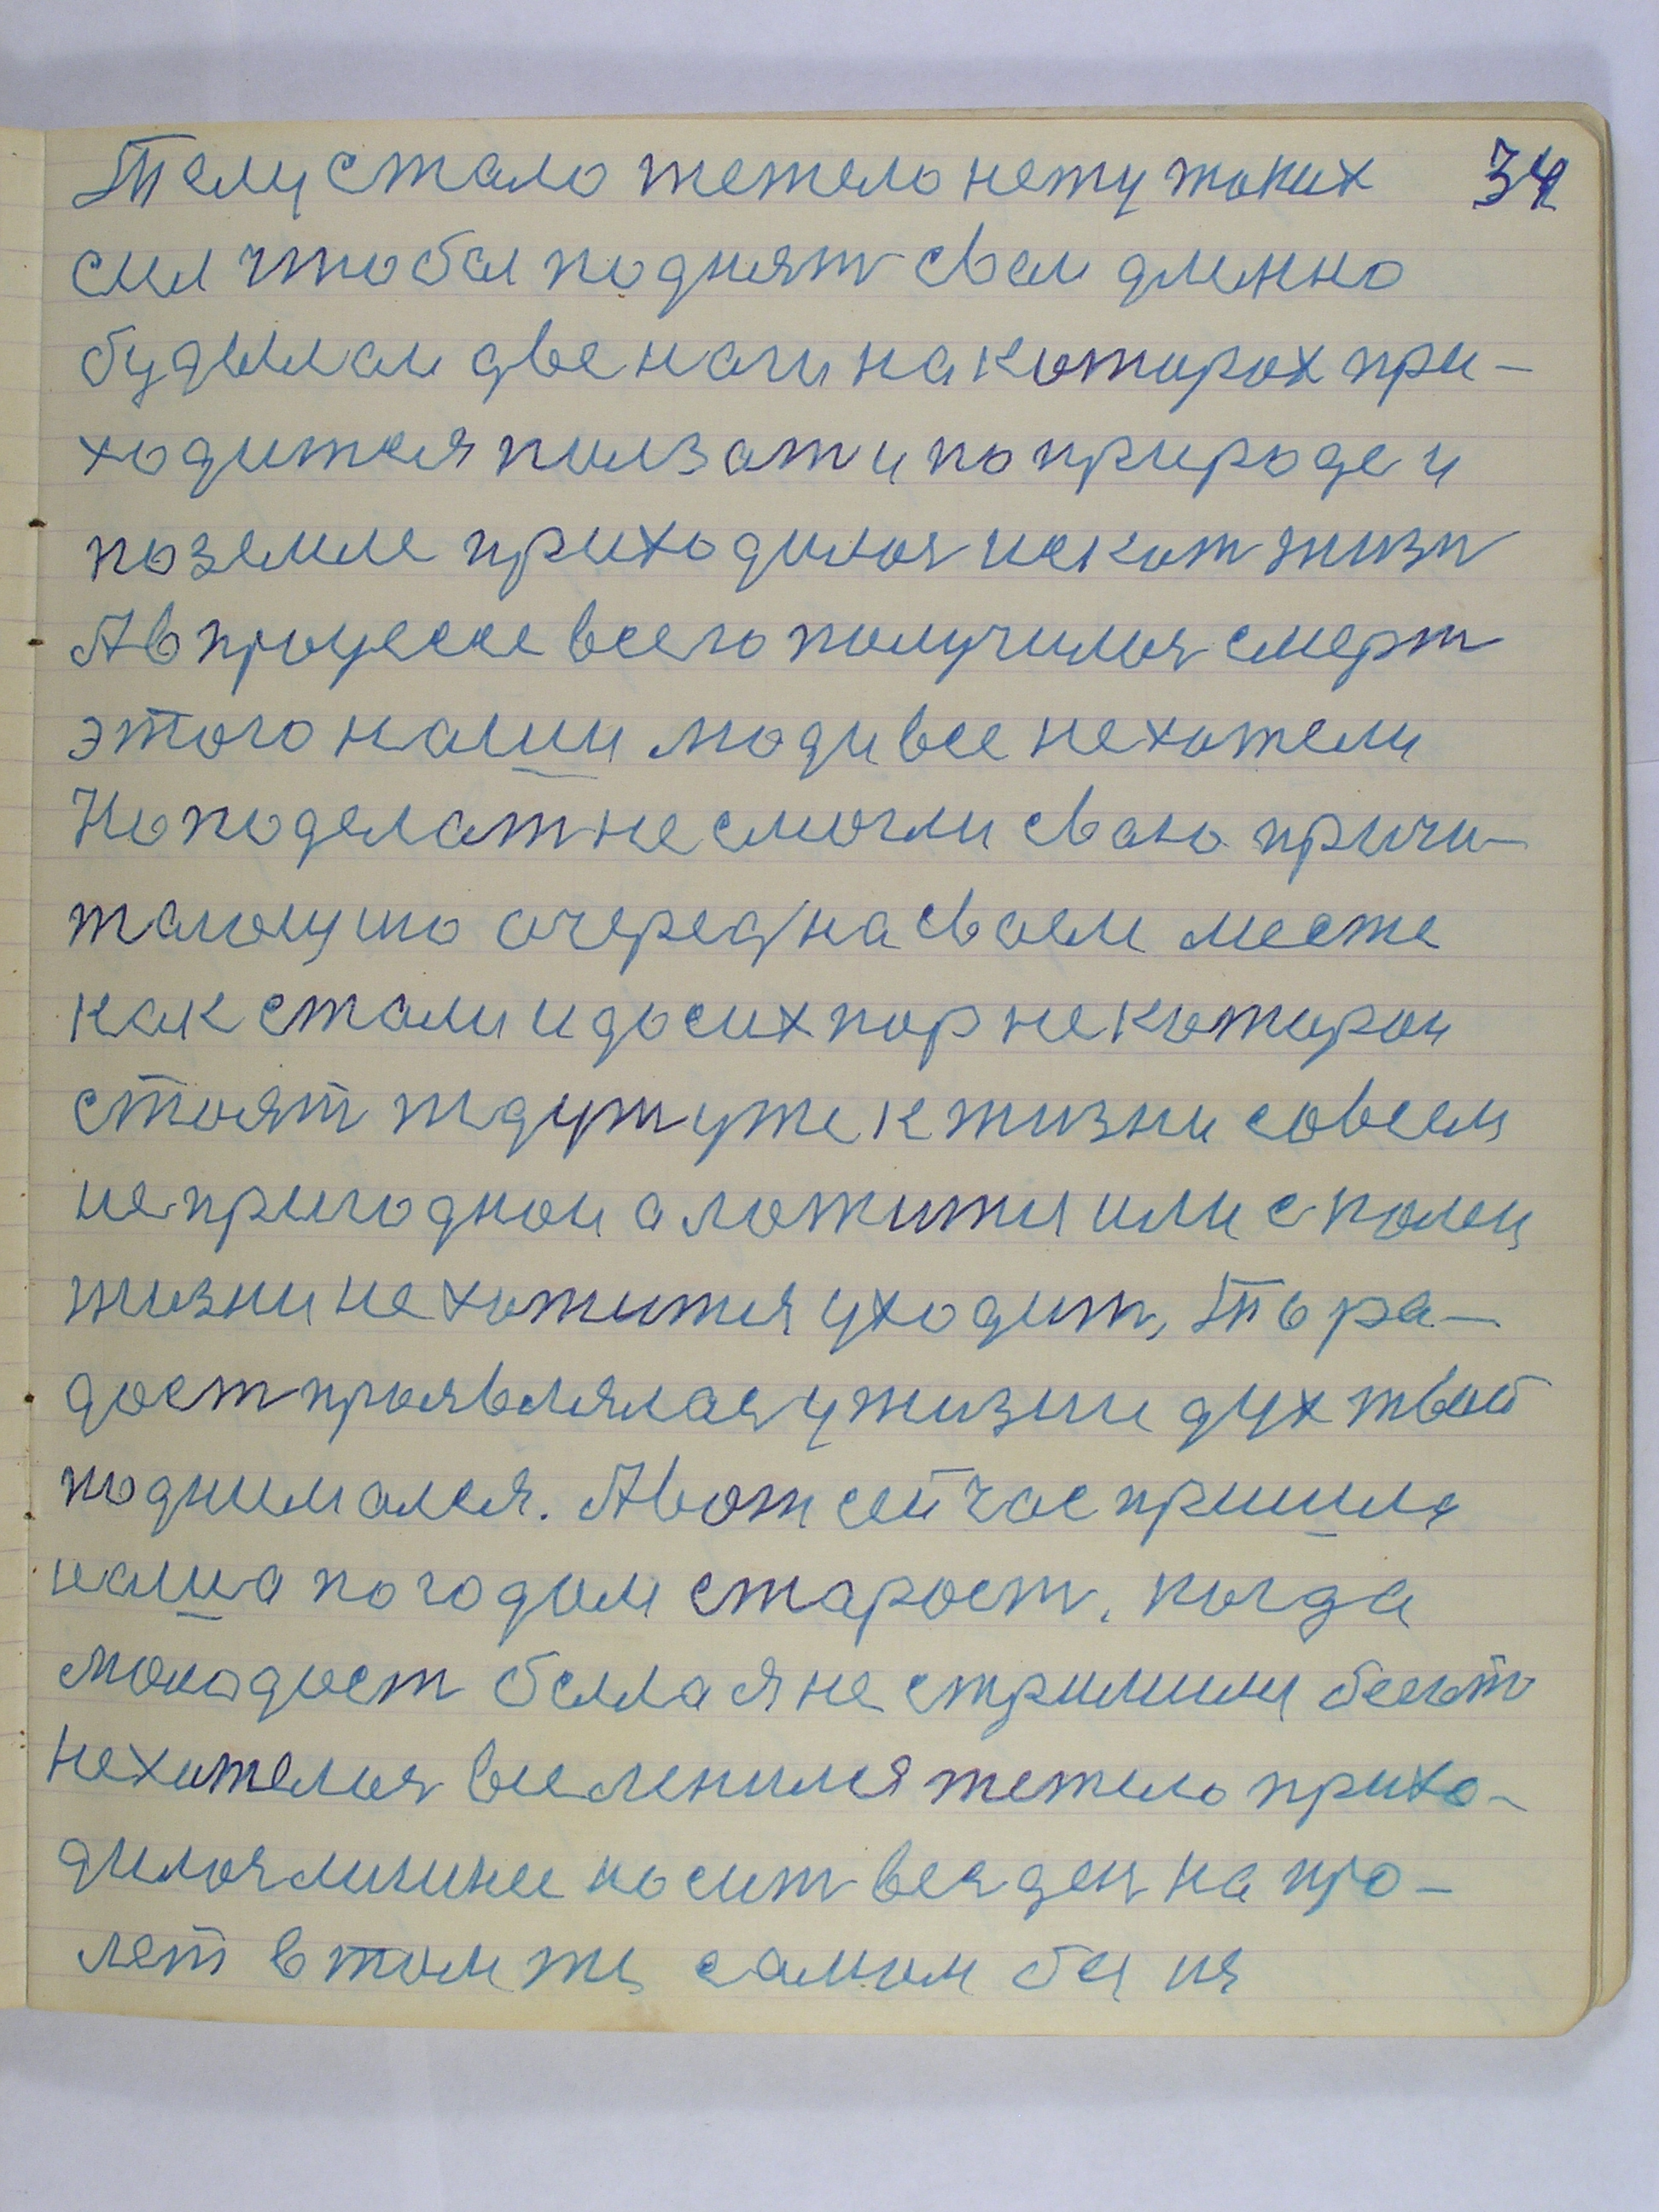 Телу стало тежело нету таких 34
сил чтобы поднят свои длинно
будылаи две наги на которох при-
ходится ползат и по природе и
по земле приходился искат жизн
А в процессе всего получился смерт
этого наши люди все не хотели
Но поделат не смогли сваю причи-
таюущю очеред на своем месте
как стали и до сих пор некоторои
стоят ждут уже к жизни совсем
не пригоднои а ложится или с полеи
жизни не хотится уходит, То ра-
дост проявлялася у жизни дух твой
поднимался. А вот сейчас пришла
наша по годам старост, когда
молодост была я не стримился бегат
не хотелося все ленился тежело прихо-
дилося лишнее носит вся ден на про-
лет в том жы самом бы ня